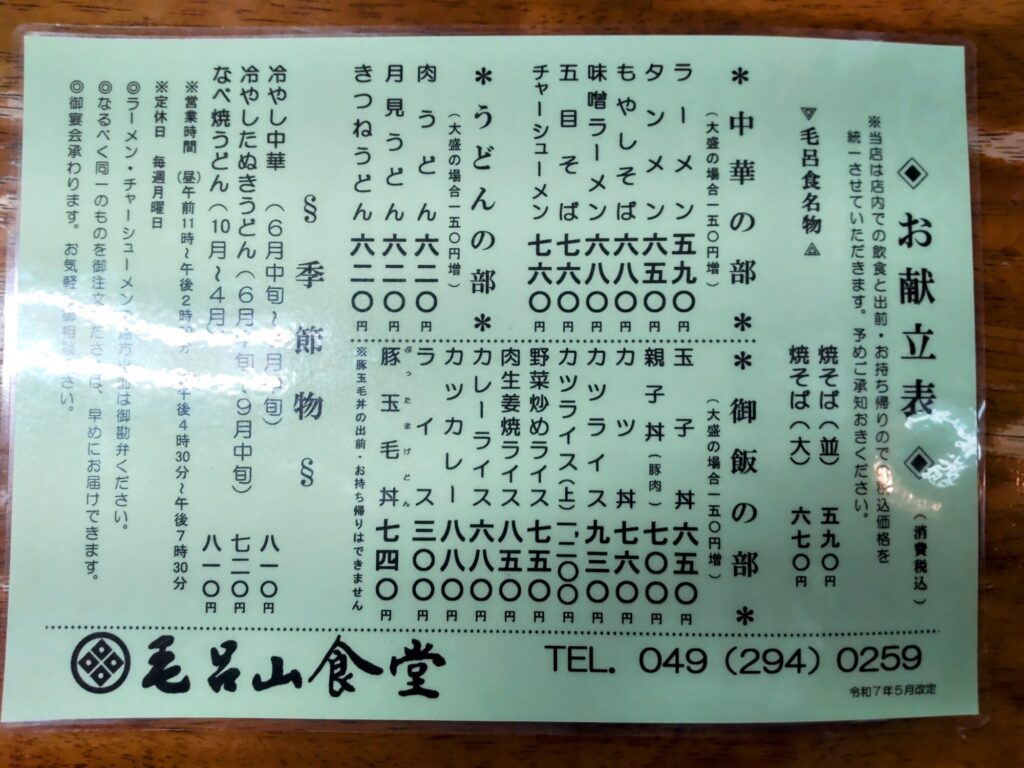 ◈ お献立表 ◈ (消費税込)
※当店は店内での飲食と出前・お持ち帰りので 税込価格を
統一させていただきます。予めご承知おきください。
▽毛呂食名物△
焼そば(並) 五九〇円
焼そば(大) 六七〇円
＊中華の部＊
(大盛の場合一五〇円増)
ラーメン 五九〇円
タンメン 六五〇円
もやしそば 六八〇円
味噌ラーメン 六八〇円
五目そば 七六〇円
チャーシューメン 七六〇円
＊御飯の部＊
(大盛の場合一五〇円増)
玉子丼 六五〇円
親子丼(豚肉) 七〇〇円
カツ丼 七六〇円
カツライス 九三〇円
カツライス(上) 一、二〇〇円
野菜炒めライス 七五〇円
肉生姜焼ライス 八五〇円
カレーライス 六八〇円
カツカレー 八八〇円
ライス 三〇〇円
豚玉毛丼 七四〇円
ぶったまげどん
※豚玉毛丼の出前・お持ち帰りはできません
＊うどんの部＊
(大盛の場合一五〇円増)
肉うどん 六二〇円
月見うどん 六二〇円
きつねうどん 六二〇円
§ 季節物 §
冷やし中華 (6月中旬～ 月中旬) 八一〇円
冷やしたぬきうどん(6月中旬～9月中旬) 七二〇円
なべ焼うどん(10月～4月) 八一〇円
※営業時間 (昼)午前11時～午後2時 午後4時30分～午後7時30分
※定休日 毎週月曜日
◎ラーメン・チャーシューメンの 御勘弁ください。
◎なるべく同一のものを御注文くださ は、早めにお届けできます。
◎御宴会承わります。お気軽 御相談 さい。
毛呂山食堂
TEL. 049 (294) 0259
令和7年5月改定